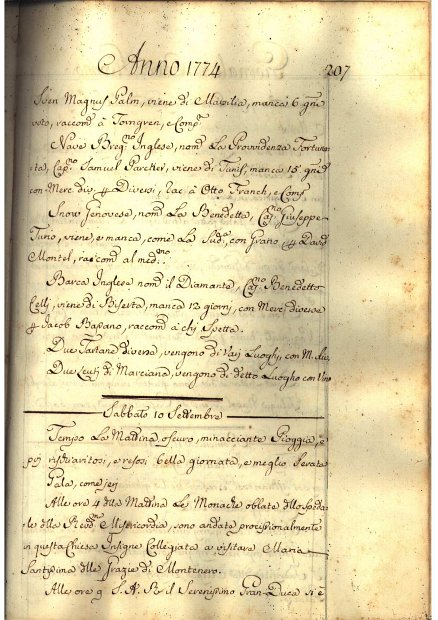 Anno 1774 207
Sven Magnus Palm, viene di Marsilia, manca 6 gni
voto, raccom: à Torngren, e Compi
Nave Bregno Inglese, nom: La Providenza Fortuna-
ta, Capno Samuel Parcker, viene di Tunis, manca 15 gni
con Merc: div: p Diversi, rac: à Otto Franck, e Comp
Snow Genovese, nom: La Benedetta, Capno Giuseppe
viene, e manca, come La Sud:a con Grano p David
Montel, raccom: al medmo
Barca Inglese nom: il Diamante, Capno Benedetto
Celli, viene di Biserta, manca 12 giorni, con Merc: diverse
p Jacob Bassano, raccom: à chi Spetta.
Due Tartane diverse, vengono di Varj Luoghi, con M: div:
Due Leuti di Marciana, vengono di detto Luogho con Vino
Sabbato 10 Settembre
Tempo La Mattina oscuro, minacciante Pioggia, e
poi rischiaritosi, e resosi bella giornata, e meglio Serata
Gala, come jeri
Alle ore 4 della Mattina Le Monache oblate dello Speda-
le della Misericordia, sono andate procesionalmente
in questa Chiesa Insigne Collegiata a visitare Maria
Santissima delle Grazie di Montenero.
Alle ore 9 S. A. R. il Serenissimo Gran-Duca si è